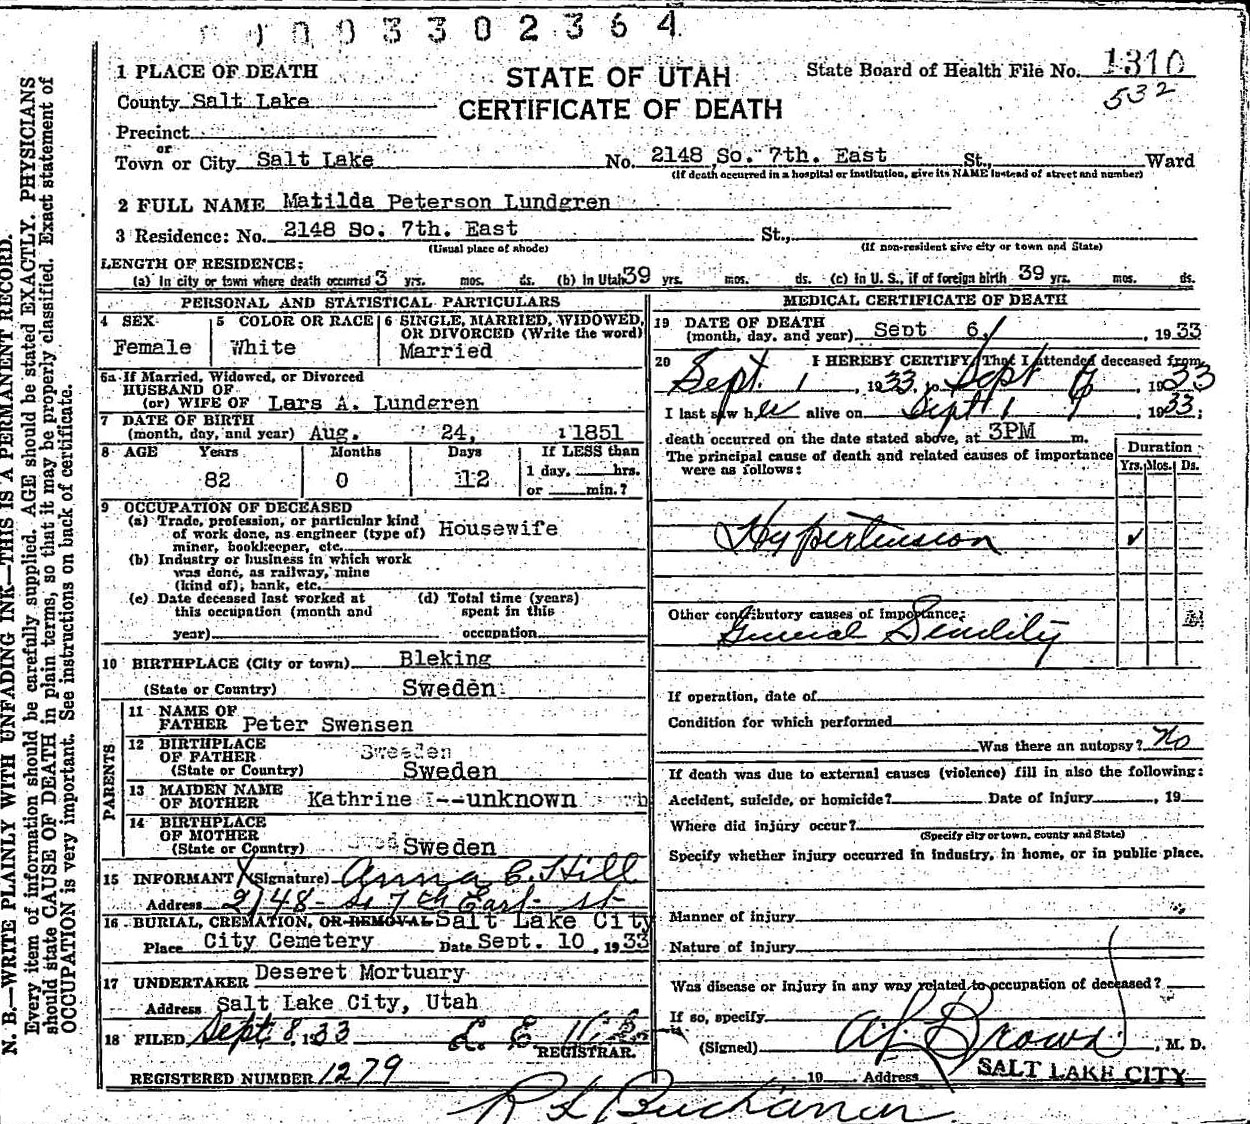 0003302364
1 PLACE OF DEATH
STATE OF UTAH
CERTIFICATE OF DEATH
State Board of Health File No. 1310
532
County Salt Lake
Precinct
or
Town or City Salt Lake No. 2148 So. 7th. East St., Ward
(If death occurred in a hospital or institution, give its NAME instead of street and number)
2 FULL NAME Matilda Peterson Lundgren
3 Residence: No. 2148 So. 7th. East St.,
(Usual place of abode) (If non-resident give city or town and State)
LENGTH OF RESIDENCE:
(a) In city or town where death occurred 3 yrs. mos. ds. (b) in Utah 39 yrs. mos. ds. (c) in U. S., if of foreign birth 39 yrs. mos. ds.
PERSONAL AND STATISTICAL PARTICULARS
4 SEX
Female
5 COLOR OR RACE
White
6 SINGLE, MARRIED, WIDOWED, OR DIVORCED (Write the word)
Married
6a If Married, Widowed, or Divorced
HUSBAND OF
(or) WIFE OF Lars A. Lundgren
7 DATE OF BIRTH
(month, day, and year) Aug. 24, 1851
8 AGE Years Months Days If LESS than
1 day, hrs.
82 0 12
or min.?
9 OCCUPATION OF DECEASED
(a) Trade, profession, or particular kind
of work done, as engineer (type of) Housewife
miner, bookkeeper, etc.
(b) Industry or business in which work
was done, as railway, mine
(kind of); bank, etc.
(c) Date deceased last worked at (d) Total time (years)
this occupation (month and spent in this
year) occupation
10 BIRTHPLACE (City or town) Bleking
(State or Country) Sweden
PARENTS
11 NAME OF
FATHER Peter Swensen
12 BIRTHPLACE Sweeden
OF FATHER
(State or Country) Sweden
13 MAIDEN NAME
OF MOTHER Kathrine --unknown
14 BIRTHPLACE
OF MOTHER
(State or Country) Sweden
15 INFORMANT X (Signature) Anna C. Hill
Address 2148 So 7th East St
16 BURIAL, CREMATION, OR REMOVAL Salt Lake City
Place City Cemetery Date Sept. 10, 1933
17 UNDERTAKER Deseret Mortuary
Address Salt Lake City, Utah
18 FILED Sept 8, 1933
REGISTRAR.
REGISTERED NUMBER 1279
MEDICAL CERTIFICATE OF DEATH
19 DATE OF DEATH
(month, day, and year) Sept 6, 1933
20 I HEREBY CERTIFY, That I attended deceased from
Sept. 1, 1933, to Sept 6, 1933
I last saw her alive on Sept 1, 1933;
death occurred on the date stated above, at 3PM m.
The principal cause of death and related causes of importance
were as follows:
Duration
Yrs. Mos. Ds.
Hypertension ✓
Other contributory causes of importance:
General Senility
If operation, date of
Condition for which performed
Was there an autopsy? No
If death was due to external causes (violence) fill in also the following:
Accident, suicide, or homicide? Date of injury , 19
Where did injury occur?
(Specify city or town, county and State)
Specify whether injury occurred in industry, in home, or in public place.
Manner of injury
Nature of injury
Was disease or injury in any way related to occupation of deceased?
If so, specify
(Signed) A L Brown, M. D.
19 Address SALT LAKE CITY
R L Buchanan
N. B.—WRITE PLAINLY WITH UNFADING INK—THIS IS A PERMANENT RECORD.
Every item of information should be carefully supplied. AGE should be stated EXACTLY. PHYSICIANS
should state CAUSE OF DEATH in plain terms, so that it may be properly classified. Exact statement of
OCCUPATION is very important. See instructions on back of certificate.